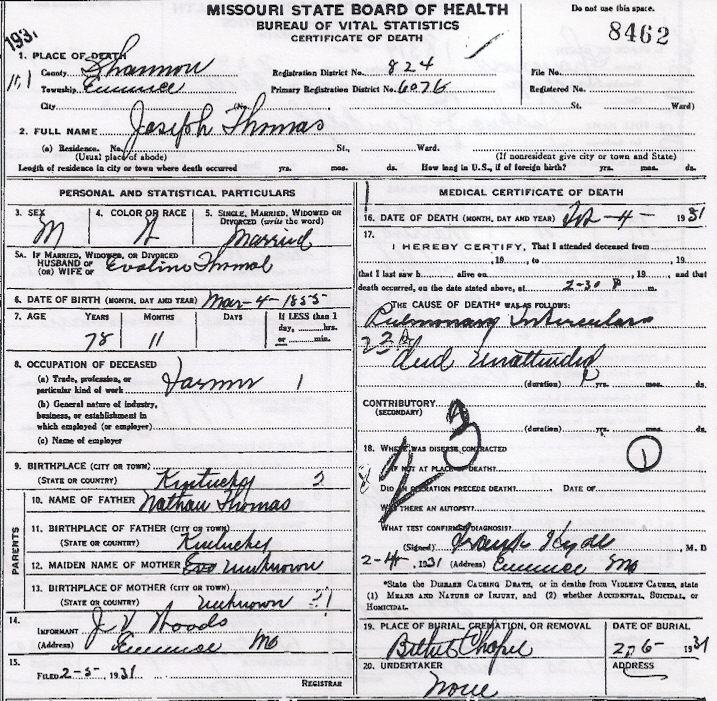 MISSOURI STATE BOARD OF HEALTH
BUREAU OF VITAL STATISTICS
CERTIFICATE OF DEATH
Do not use this space.
8462
1931
1. PLACE OF DEATH
County Shannon
Registration District No. 824
File No.
Township Eminence
Primary Registration District No. 6076
Registered No.
City (No. St. Ward)
2. FULL NAME Joseph Thomas
(a) Residence. No. St., Ward.
(Usual place of abode) (If nonresident give city or town and State)
Length of residence in city or town where death occurred yrs. mos. ds. How long in U.S., if of foreign birth? yrs. mos. ds.
PERSONAL AND STATISTICAL PARTICULARS
3. SEX M
4. COLOR OR RACE W
5. SINGLE, MARRIED, WIDOWED OR
DIVORCED (write the word)
Married
5A. IF MARRIED, WIDOWED, OR DIVORCED
HUSBAND OF
(OR) WIFE OF Evaline Thomas
6. DATE OF BIRTH (MONTH, DAY AND YEAR) Mar-4-1855
7. AGE YEARS MONTHS DAYS If LESS than 1
day, hrs.
or min.
78 11
8. OCCUPATION OF DECEASED
(a) Trade, profession, or
particular kind of work Farmer 1
(b) General nature of industry,
business, or establishment in
which employed (or employer)
(c) Name of employer
9. BIRTHPLACE (CITY OR TOWN)
(STATE OR COUNTRY) Kentucky
PARENTS
10. NAME OF FATHER Nathan Thomas
11. BIRTHPLACE OF FATHER (CITY OR TOWN)
(STATE OR COUNTRY) Kentucky
12. MAIDEN NAME OF MOTHER unknown
13. BIRTHPLACE OF MOTHER (CITY OR TOWN)
(STATE OR COUNTRY) unknown
14.
INFORMANT J. V. Woods
(Address) Eminence Mo
15.
FILED 2-5-, 1931
REGISTRAR
MEDICAL CERTIFICATE OF DEATH
16. DATE OF DEATH (MONTH, DAY AND YEAR) Feb-4- 1931
17.
I HEREBY CERTIFY, That I attended deceased from
, 19 , to , 19
that I last saw h alive on , 19 , and that
death occurred, on the date stated above, at 2-30 P m.
THE CAUSE OF DEATH* WAS AS FOLLOWS:
Pulmonary Tuberculosis
Died Unattended
(duration) yrs. mos. ds.
CONTRIBUTORY
(SECONDARY)
(duration) yrs. mos. ds.
18. WHERE WAS DISEASE CONTRACTED
IF NOT AT PLACE OF DEATH?
1
DID AN OPERATION PRECEDE DEATH? DATE OF
WAS THERE AN AUTOPSY?
WHAT TEST CONFIRMED DIAGNOSIS?
(Signed) Frank Hyde, M.D
2-4-, 1931 (Address) Eminence Mo
*State the DISEASE CAUSING DEATH, or in deaths from VIOLENT CAUSES, state
(1) MEANS AND NATURE OF INJURY, and (2) whether ACCIDENTAL, SUICIDAL, or
HOMICIDAL.
19. PLACE OF BURIAL, CREMATION, OR REMOVAL DATE OF BURIAL
Bethel Chapel 2-6- 1931
20. UNDERTAKER ADDRESS
none